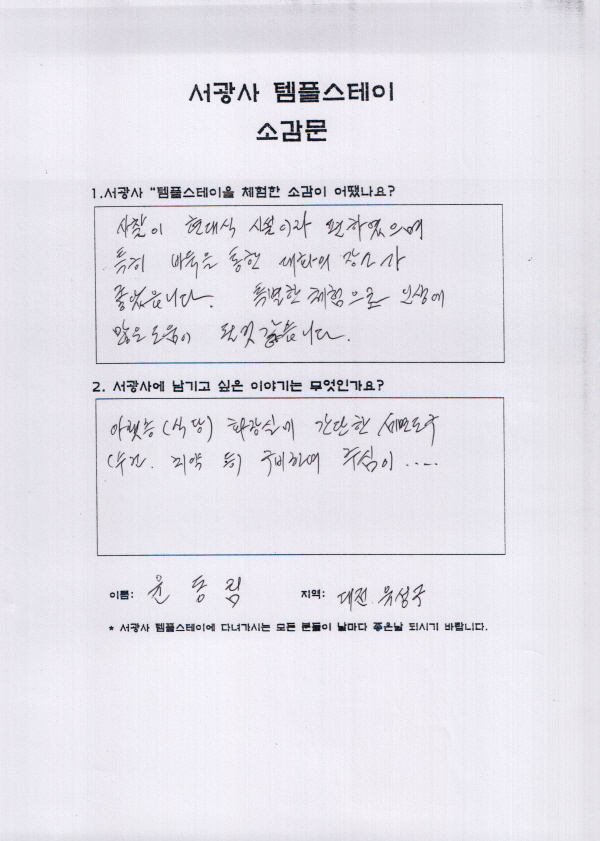 서광사 템플스테이
소감문
1.서광사 "템플스테이을 체험한 소감이 어땠나요?
사찰이 현대식 시설이라 편하였으며
특히 바둑을 통한 대화의 장소가
좋았습니다. 특별한 체험으로 인생에
많은 도움이 된것 같습니다.
2. 서광사에 남기고 싶은 이야기는 무엇인가요?
아랫층(식당) 화장실에 간단한 세면도구
(수건. 치약 등) 구비하여 주심이 .....
이름: 윤 동 림 지역: 대전. 유성구
* 서광사 템플스테이에 다녀가시는 모든 분들이 날마다 좋은날 되시기 바랍니다.